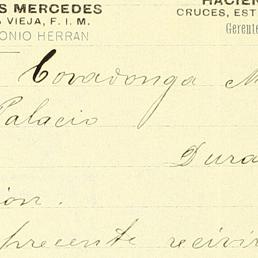 S MERCEDES HACIEN
VIEJA, F. I. M. CRUCES, EST
ONIO HERRAN Gerente
Covadonga M
Palacio
Dura
ión.
precente recivi